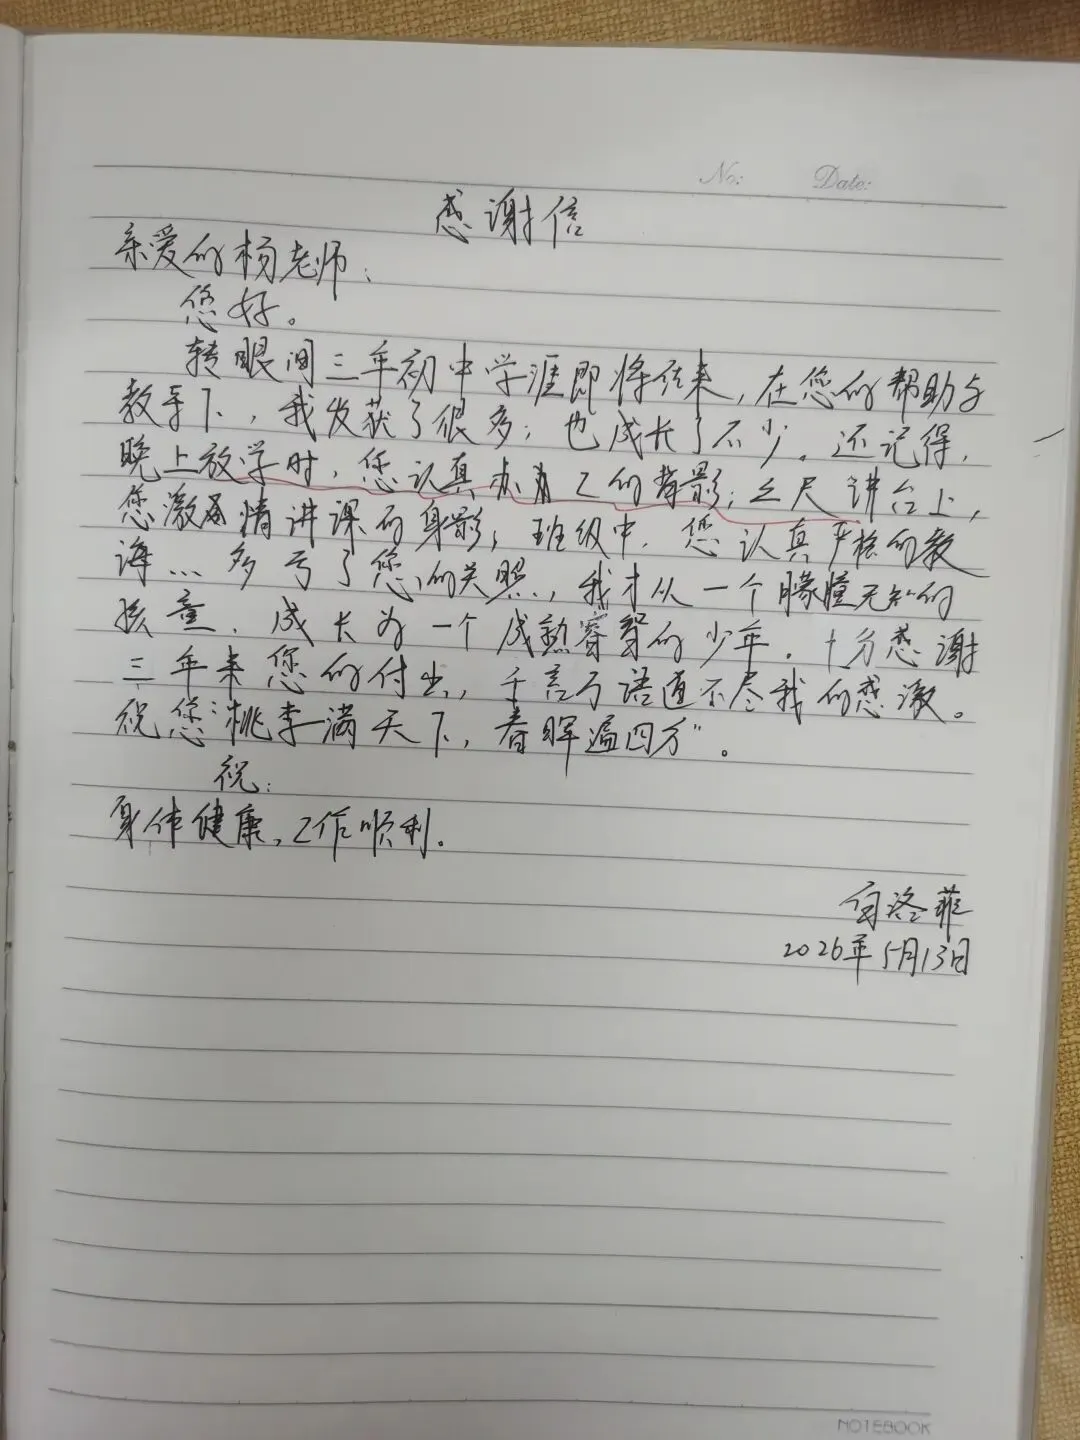 No: Date:
感谢信
亲爱的杨老师:
您好。
转眼间三年初中学涯即将结束,在您的帮助与
教导下,我收获了很多;也成长了不少。还记得,
晚上放学时,您认真办工的背影;三尺讲台上,
您激情讲课的身影;班级中,您认真严格的教
诲…多亏了您的关照,我才从一个朦胧无知的
孩童、成长为一个成熟睿智的少年。十分感谢
三年来您的付出,千言万语道不尽我的感激。
祝您“桃李满天下,春晖遍四方”。
祝:
身体健康,工作顺利。
洛菲
2026年5月13日
NOTEBOOK